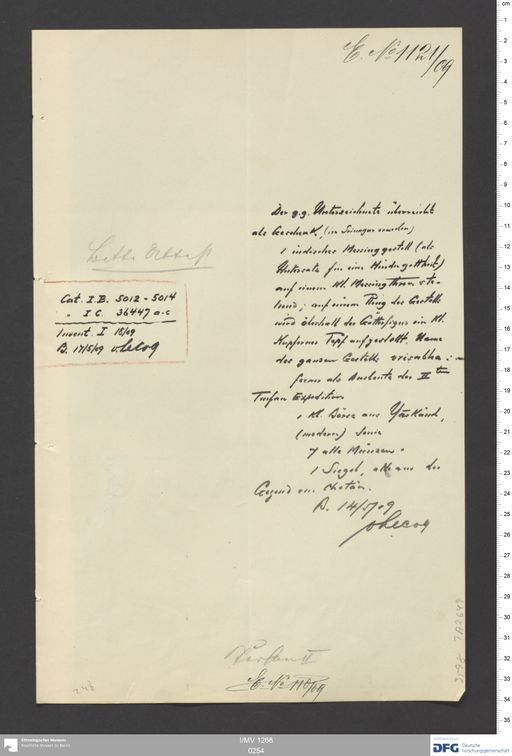 E. No 1121/09
Der g. g. Unterzeichnete überreicht
als Geschenk, (in Srinagar erworben)
1 indisches Messinggestell (als
Untersatz für eine Hindugottheit)
auf einem kl. Messingthron ste-
hend; auf einem Ring des Gestells
wird oberhalb der Götterfigur ein kl.
Kupfernes Topf aufgestellt. Name
des ganzen Gestells
ferner als Ausbeute der IIten
Turfan Expedition
1 kl. Börse aus Yārkänd,
(modern) sowie
7 alte Münzen.
1 Siegel, alle aus der
Gegend von Chotän.
B. 14/5/09
vLecoq
Cat. I.B. 5012-5014
" I.C. 36447 a-c
Invent. I 18/09
B. 17/5/09 vLecoq
Turfan II
E. No 1110/09
I/MV 1268
0254
Ethnologisches Museum
Staatliche Museen zu Berlin
DFG Deutsche
Forschungsgemeinschaft